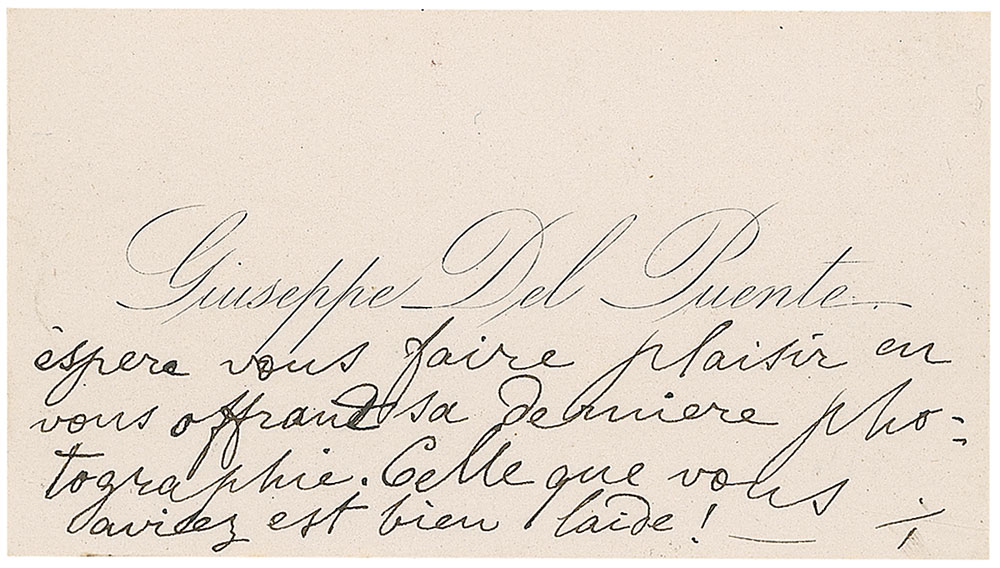 Giuseppe Del Puente
èspere vous faire plaisir en
vous offrand sa derniere pho-
tographie. Celle que vous
aviez est bien laide!